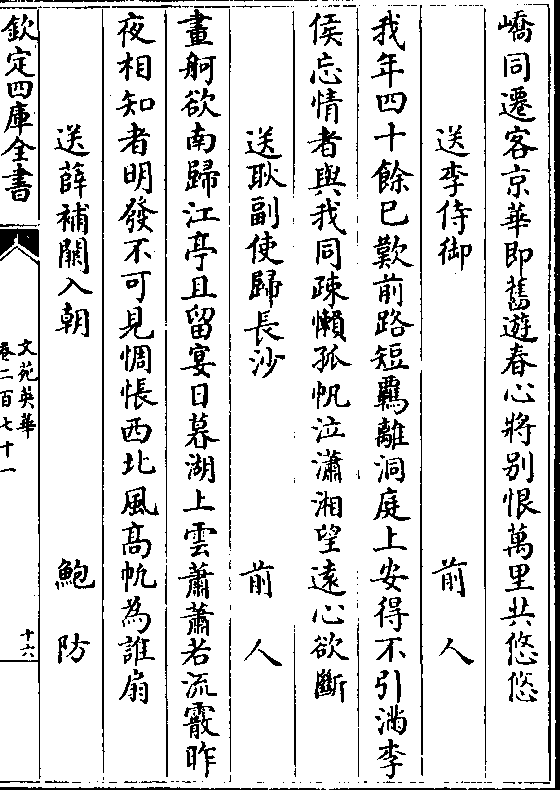 嶠同遷客京華即舊遊春心將別恨萬里共悠悠
送李侍御　前人
我年四十餘已歎前路短羈離洞庭上安得不引滿李
侯忘情者與我同疎懶孤帆泣瀟湘望遠心欲斷
送耿副使歸長沙　前人
畫舸欲南歸江亭且留宴日暮湖上雲蕭蕭若流霰昨
夜相知者明發不可見惆悵西北風高帆為誰扇
送薛補闕入朝　鮑防
欽定四庫全書
文苑英華
卷二百七十一
十六